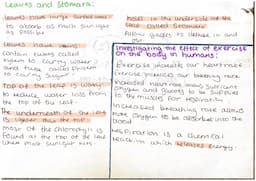 Leaves and Stomata:
Leaves have large surface area
to absorb as much sunlight
as possible
Leaves have veins
contain tubes called
xylem to carry water
and tubes called phloem
to carry sugar.
Top of the leaf is waxy
to reduce water loss from
the top of the leaf.
The underneath of the leaf
is lighter than the top.
most of the chlorophyll is
found at the top of the leaf
where most sunlight hits
holes in the underside of the
leaf called stomata.
Allow gases to diffuse in and
Investigating the effect of exercise
on the body in humans:
Exercise promotes our heart rate
Exercise promotes our breathing rate
Increased heart rate means sufficient
oxygen and glucose to be supplied
to the muscles for respiration.
Increased breathing rate allows
more oxygen to be absorbed into the
blood
Respiration is a chemical
reaction which releases energy.